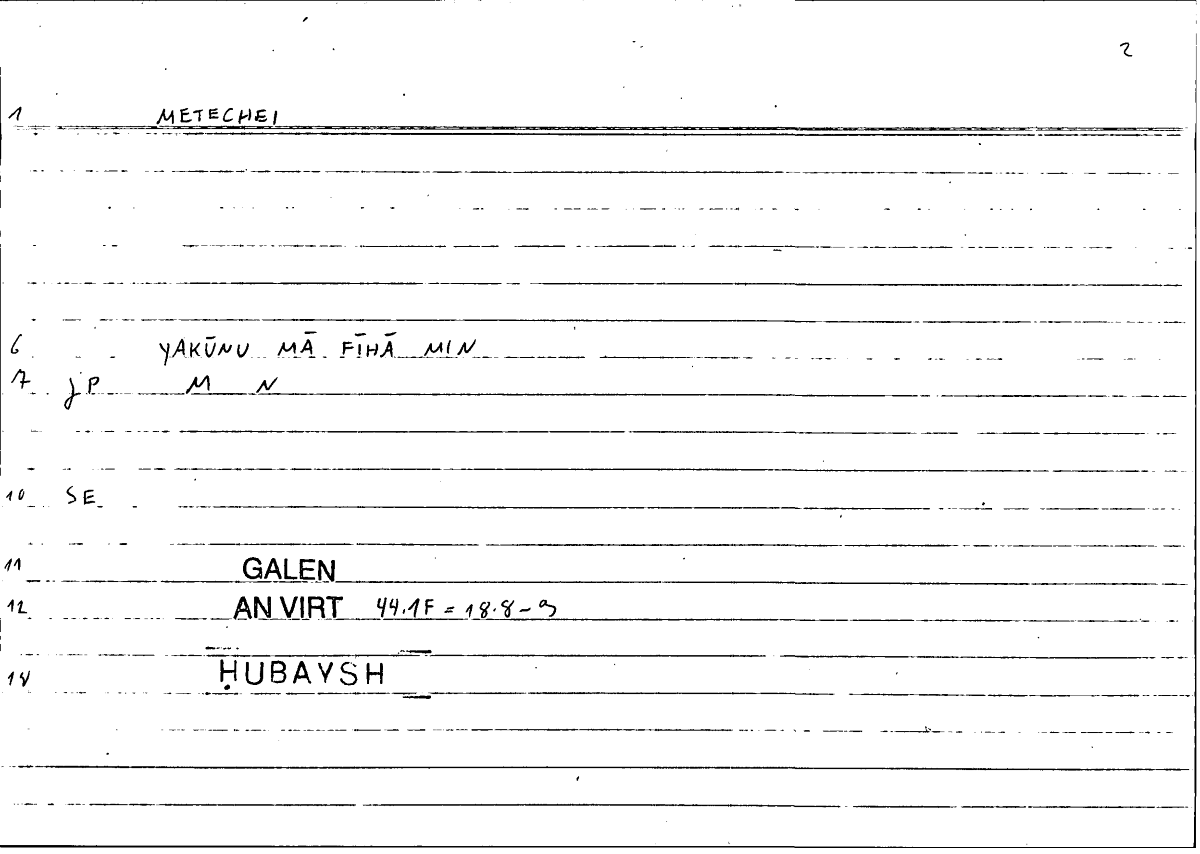 2
1 METECHEI
6 YAKŪNU MĀ FĪHĀ MIN
7 JP M N
10 SE
11 GALEN
12 AN VIRT 44.1F = 18.8-9
14 ḤUBAYSH